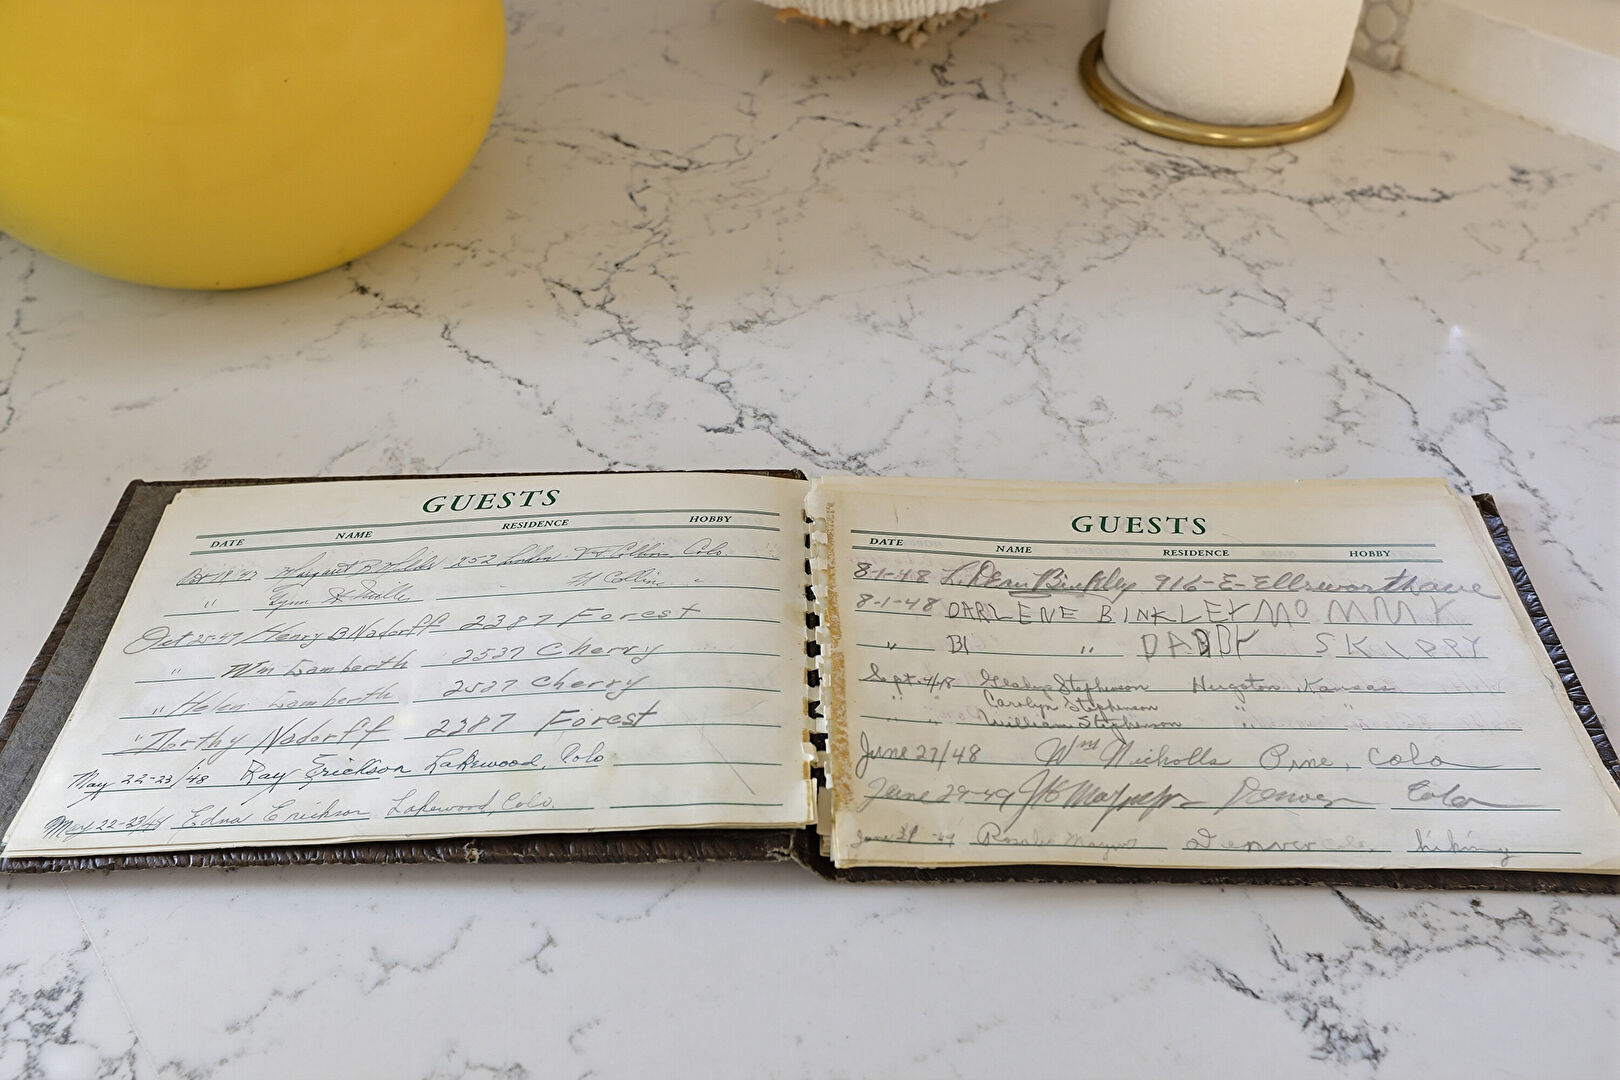 GUESTS
DATE NAME RESIDENCE HOBBY
Oct 18 '47 Margaret B 252 Ft Collins, Colo.
" Lynn Ft Collins "
Oct 25-47 Henry B Nadorff 2387 Forest
" Wm Lamberth 2527 Cherry
" Helen Lamberth 2527 Cherry
" Dorthy Nadorff 2387 Forest
May 22-23/48 Ray Erickson Lakewood, Colo
May 22-23/48 Edna Erickson Lakewood, Colo.
GUESTS
DATE NAME RESIDENCE HOBBY
8-1-48 Binkley 916-E-Ellsworth ave
8-1-48 DARLENE BINKLEY MOMMY
" BI " DADDY SKIPPY
Sept 4/48 Gladys Stephenson Hugoton, Kansas
" Carolyn Stephenson
" " William Stephenson " "
June 27/48 Wm Nicholls Pine, Colo
June 29-49 Denver Colo
June -49 Rosalie Denver Colo. hiking